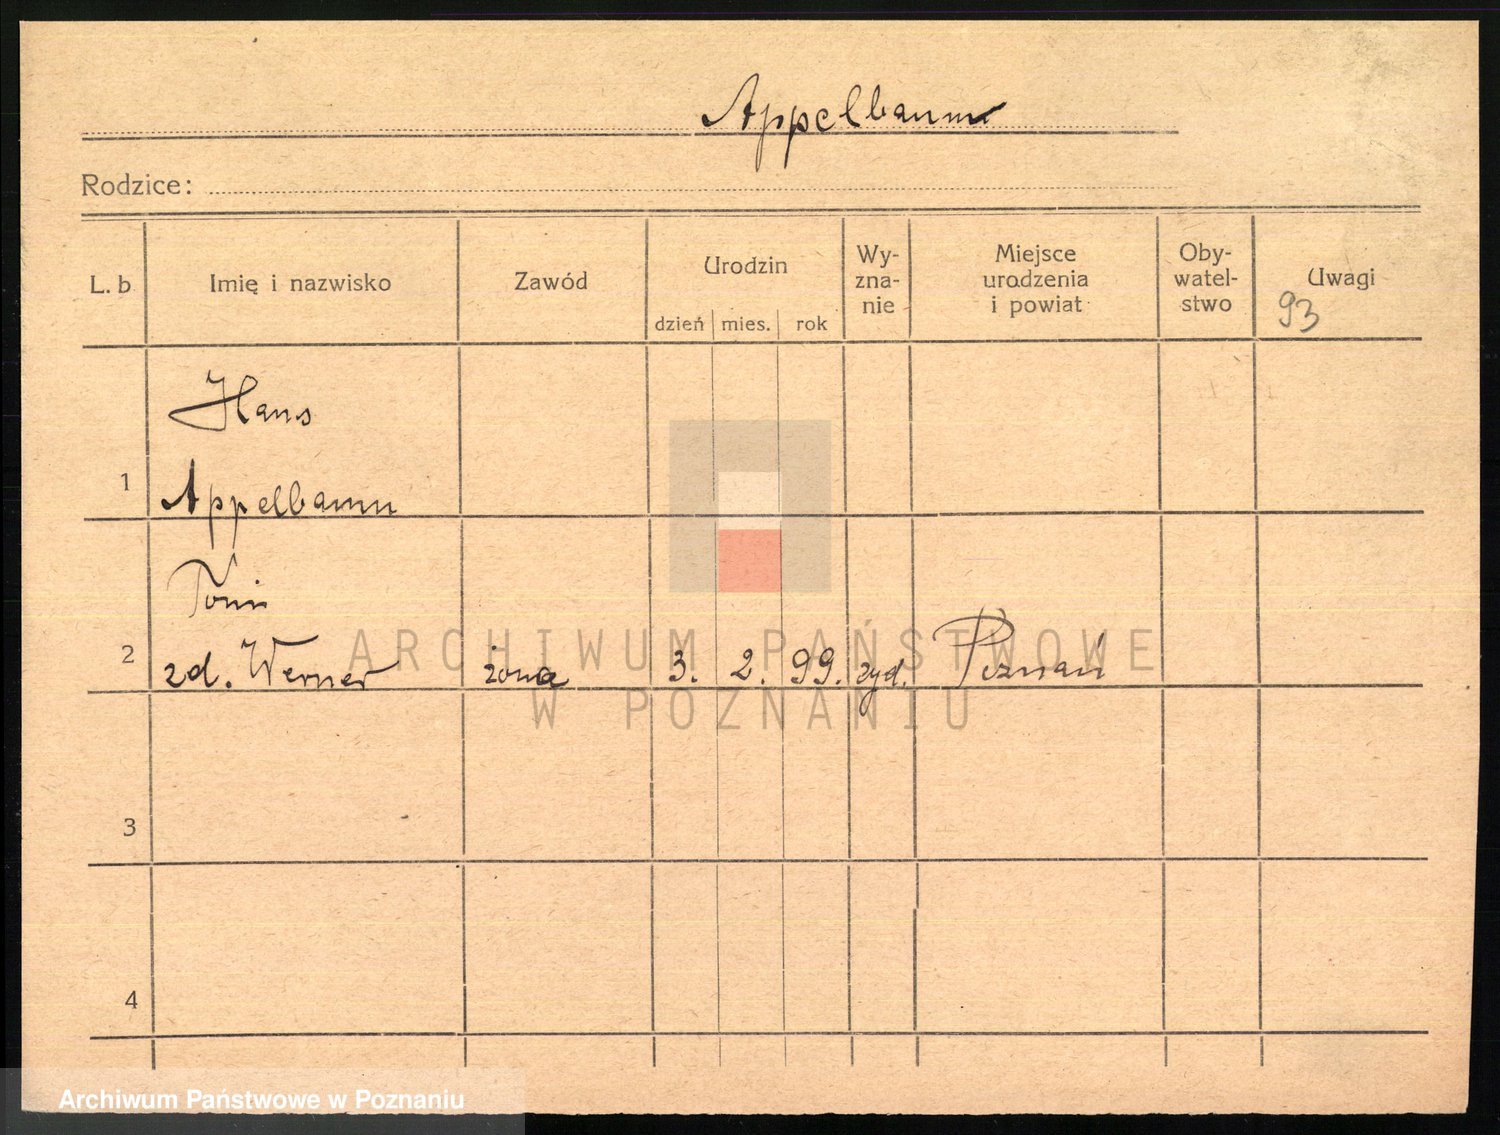 Appelbaum
Rodzice:
L. b
Imię i nazwisko
Zawód
Urodzin
dzień mies. rok
Wy-
zna-
nie
Miejsce
urodzenia
i powiat
Oby-
watel-
stwo
Uwagi
93
Hans
1 Appelbaum
Toni
2 zd. Werner żona 3. 2. 99. żyd. Poznań
3
4
ARCHIWUM PAŃSTWOWE
W POZNANIU
Archiwum Państwowe w Poznaniu